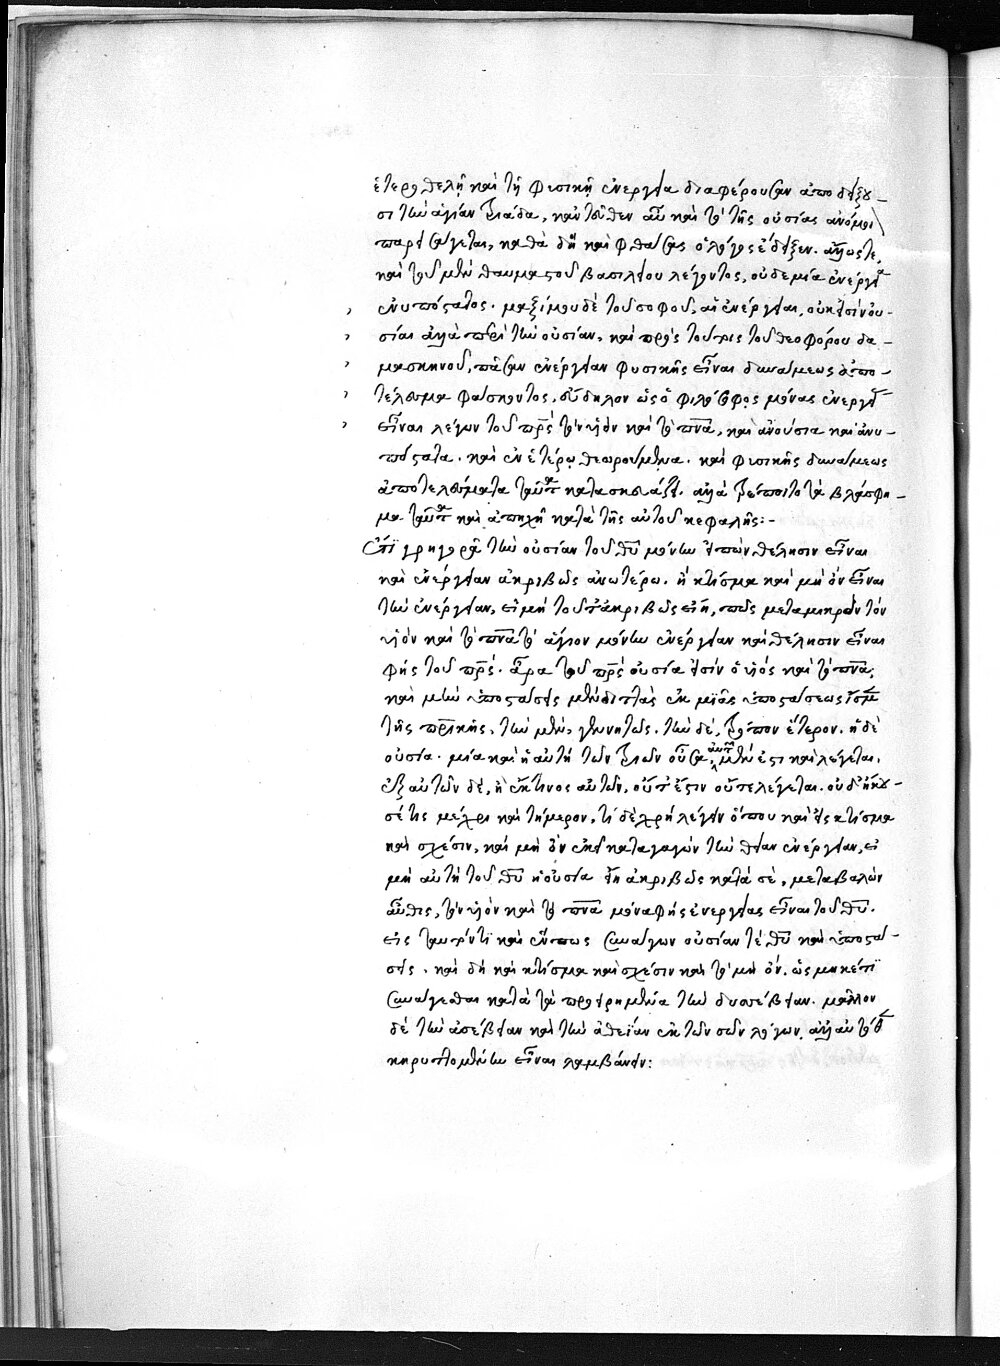 ἑτεροθελῆ καὶ τῇ φυσικῇ ἐνεργεία διαφέρουσαν ἀποδείξου-
σι τὴν ἁγίαν τριάδα, κἀντεῦθεν αὖ καὶ τὸ τῆς οὐσίας ἀνόμοι
παρεισάγεται, καθὰ δὴ καὶ φθάσας ὁ λόγος ἔδειξεν. ἄλλως τε,
καὶ τοῦ μὲν θαυμαστοῦ βασιλείου λέγοντος, οὐδεμία ἐνέργεια
ἐνυπόστατος. μαξίμου δὲ τοῦ σοφοῦ, αἱ ἐνέργειαι, οὐκ εἰσὶν οὐ-
σίαι ἀλλὰ περὶ τὴν οὐσίαν, καὶ πρός τούτοις τοῦ θεοφόρου δα-
μασκηνοῦ, πᾶσαν ἐνέργειαν φυσικῆς εἶναι δυνάμεως ἀπο-
τέλεσμα φάσκοντος, εὔδηλον ὡς ὁ φιλόσοφος μόνας ἐνεργείας
εἶναι λέγων τοῦ πρς τὸν υἱὸν καὶ τὸ πνα, καὶ ἀνούσια καὶ ἀνυ-
πόστατα. καὶ ἐν ἑτέρω θεωρούμενα. καὶ φυσικῆς δυνάμεως
ἀποτελέσματα ταῦτα κατασκευάζει. ἀλλὰ τρέποιτο τὰ βλάσφη-
μα ταῦτα καὶ ἀπηχῆ κατὰ τῆς αὐτοῦ κεφαλῆς:-
Ἔτι γρηγορᾶ τὴν οὐσίαν τοῦ θυ μόνην εἰπὼν θέλησιν εἶναι
καὶ ἐνέργειαν ἀκριβῶς ἀνωτέρω. ἢ κτίσμα καὶ μὴ ὂν εἶναι
τὴν ἐνέργειαν, εἰ μὴ τοῦτ' ἀκριβῶς εἴη, πῶς μεταμικρὸν τὸν
υἱὸν καὶ τὸ πνα τὸ ἅγιον μόνην ἐνέργειαν καὶ θέλησιν εἶναι
φὴς τοῦ πρς. ἆρα τοῦ πρς οὐσία εἰσὶν ὁ υἱός καὶ τὸ πνα;
καὶ μὴν ὑποστάσεις μὲν διττὰς ἐκ μιᾶς ὑποστάσεως ἴσμεν
τῆς πρικῆς, τὴν μὲν, γεννητῶς. τὴν δὲ, τρόπον ἕτερον. ἡ δὲ
οὐσία. μία καὶ ἡ αὐτὴ τῶν τριῶν οὖσα, αὐτῶν μέν ἐστι καὶ λέγεται.
ἐξ αὐτῶν δὲ, ἢ ἔκ τινος αὐτῶν, οὔτ' ἔστιν οὔτε λέγεται. οὐδ' ἤκου-
σέ τις μέχρι καὶ τήμερον, τί δὲ χρὴ λέγειν ὅπου καὶ εἰς κτίσμα
καὶ σχέσιν, καὶ μὴ ὂν ἐκεῖ καταγαγὼν τὴν θείαν ἐνέργειαν, εἰ
μὴ αὐτὴ τοῦ θυ ἡ οὐσία εἴη ἀκριβῶς κατά σὲ, μεταβαλὼν
αὖθις, τὸν υἱὸν καὶ τὸ πνα μόνα φὴς ἐνεργείας εἶναι τοῦ θυ.
εἰς ταυτὸν τι καὶ οὕτως συνάγων οὐσίαν τὲ θυ καὶ ὑποστά-
σεις. καὶ δὴ καὶ κτίσμα καὶ σχέσιν καὶ τὸ μὴ ὄν. ὡς μηκέτι
συνάγεσθαι κατὰ τὰ προειρημένα τὴν δυσσέβειαν. μᾶλλον
δὲ τὴν ἀσέβειαν καὶ τὴν ἀθεΐαν ἐκ τῶν σῶν λόγων,
κηρυττομένην εἶναι λαμβάνειν: